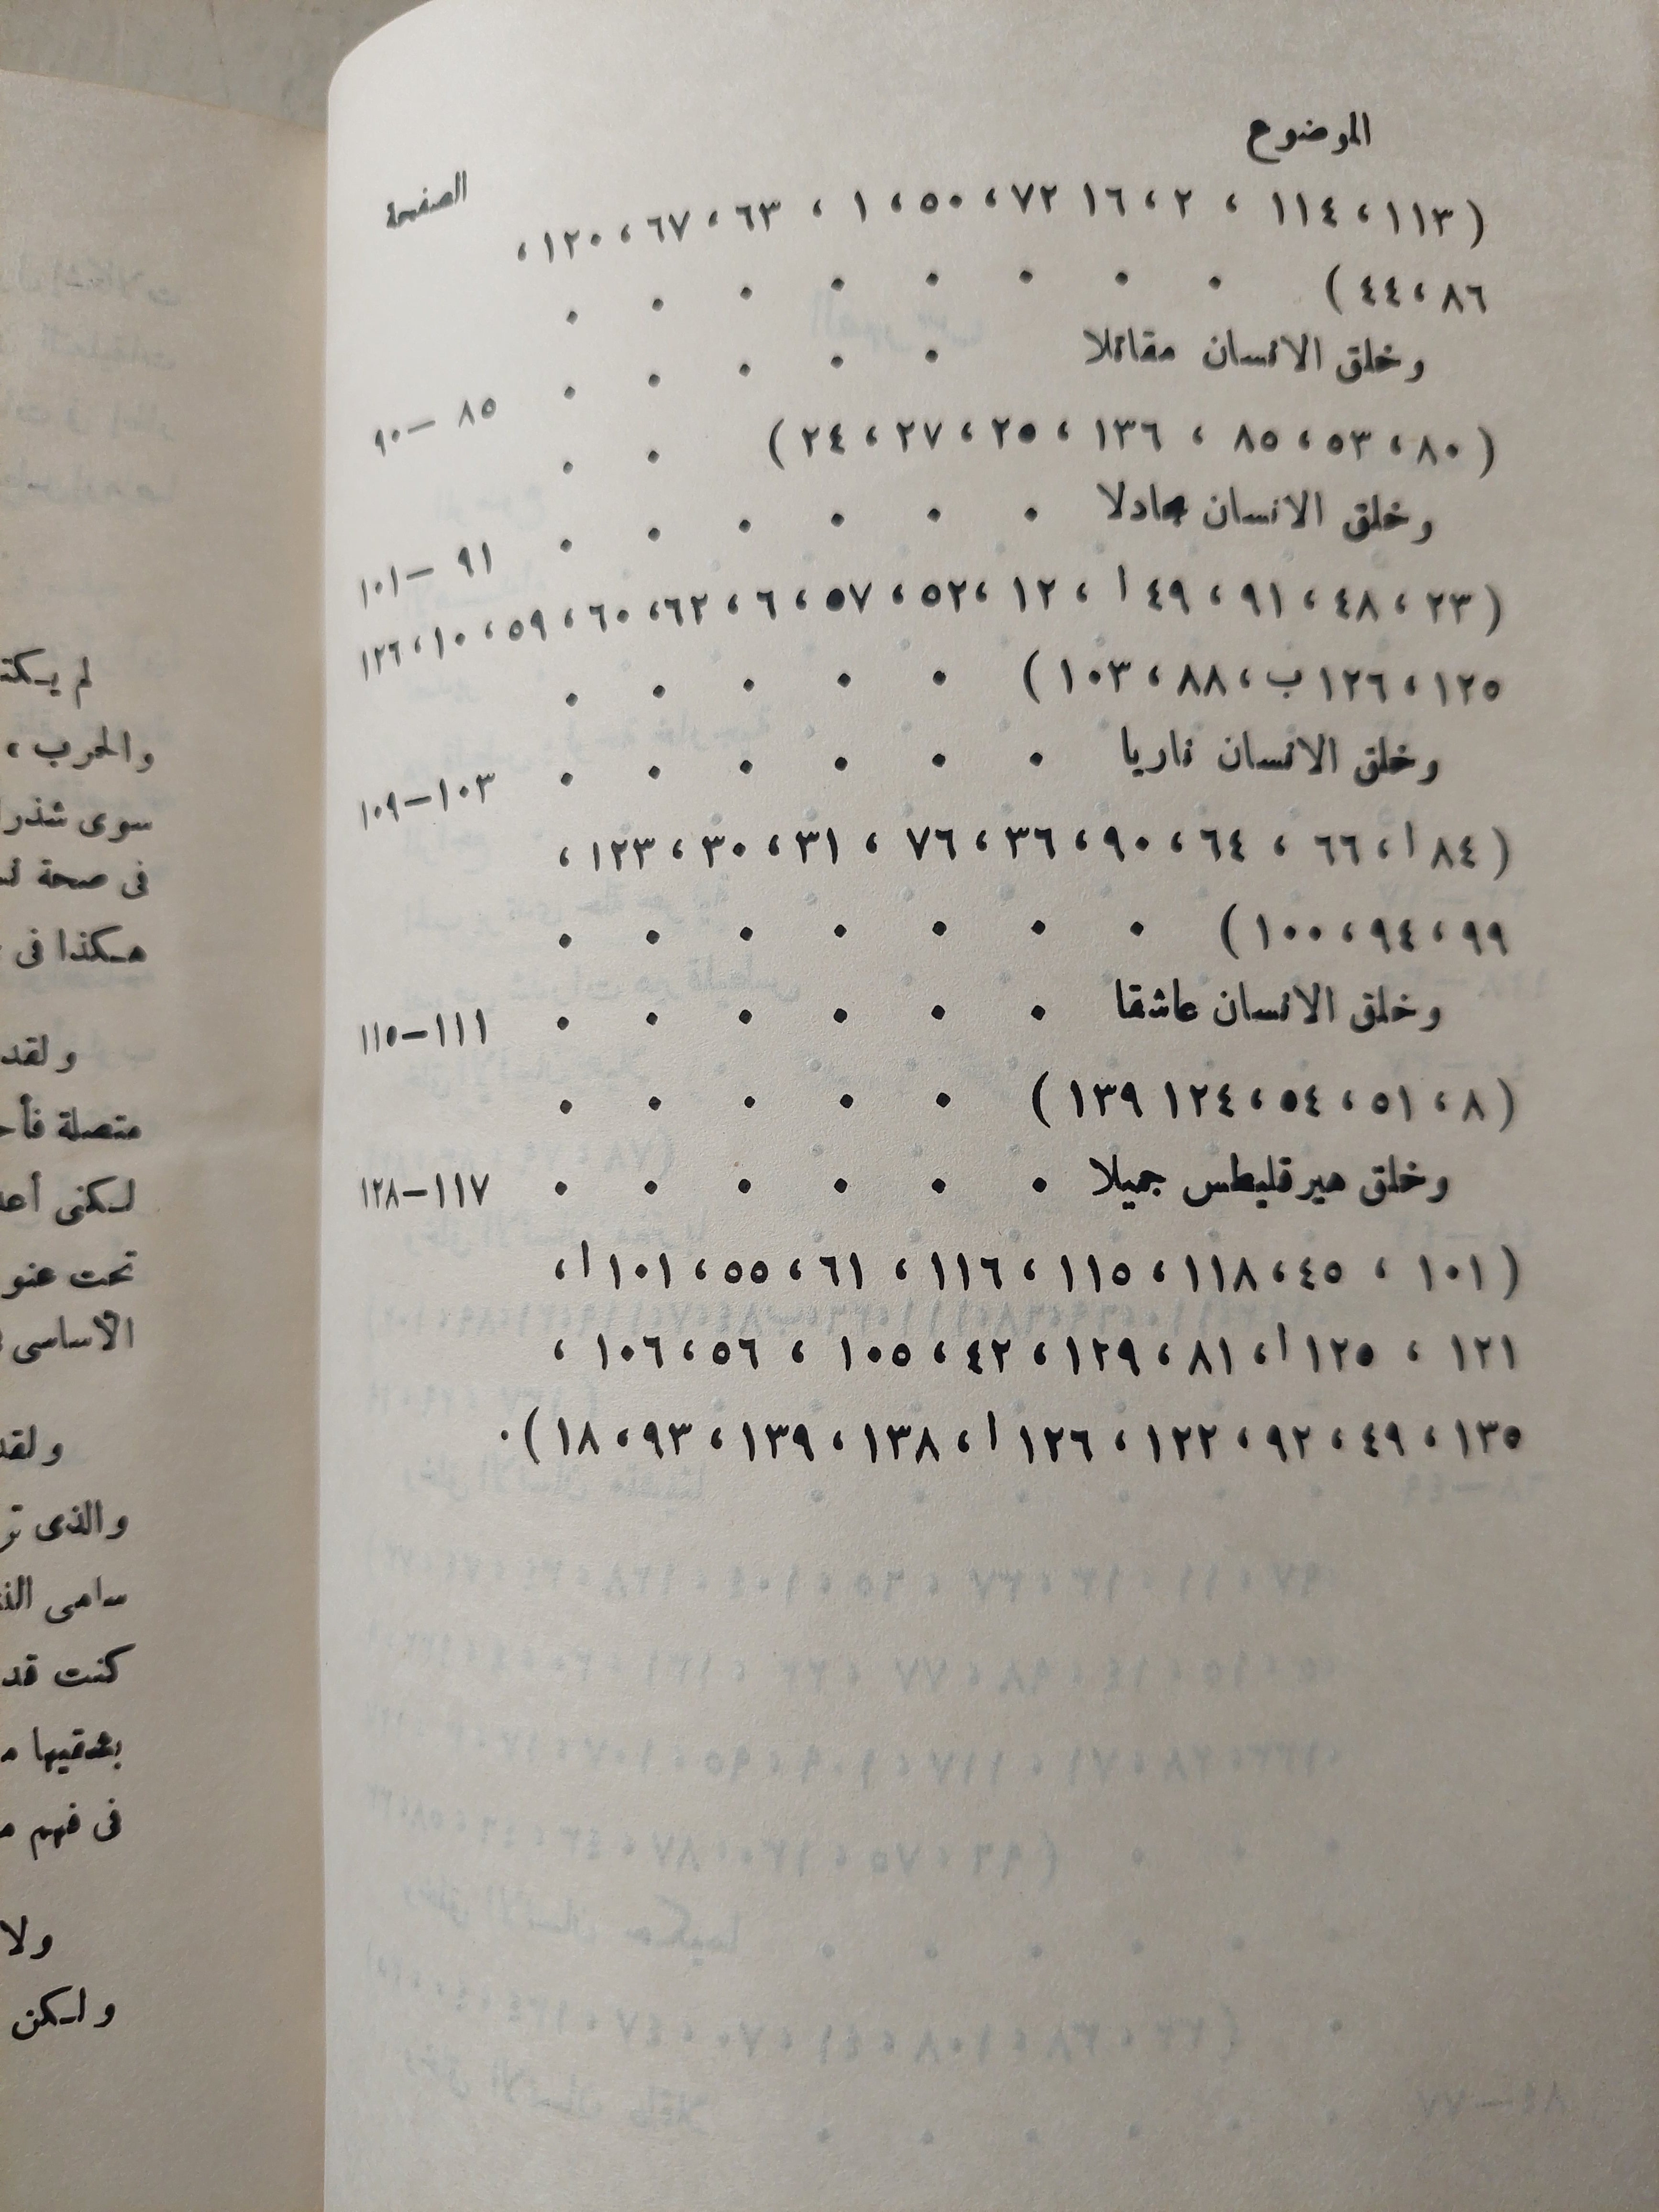 الموضوع
الصفحة
( ١١٣ ، ١١٤ ، ٢ ، ١٦ ٧٢ ، ٥٠ ، ١ ، ٦٣ ، ٦٧ ، ١٢٠ ،
٨٦ ، ٤٤ ) . . . . . . . .
وخلق الانسان مقاتلا . . . . . ٨٥ — ٩٠
( ٨٠ ، ٥٣ ، ٨٥ ، ١٣٦ ، ٢٥ ، ٢٧ ، ٢٤ ) . .
وخلق الانسان عادلا . . . . . . ٩١ — ١٠١
( ٢٣ ، ٤٨ ، ٩١ ، ٤٩ ا ، ١٢ ، ٥٢ ، ٥٧ ، ٦ ، ٦٢ ، ٦٠ ، ٥٩ ، ١٠ ، ١٢٦
١٢٥ ، ١٢٦ ب ، ٨٨ ، ١٠٣ ) . . . . .
وخلق الانسان ناريا . . . . . . ١٠٣—١٠٩
( ٨٤ ا ، ٦٦ ، ٦٤ ، ٩٠ ، ٣٦ ، ٧٦ ، ٣١ ، ٣٠ ، ١٢٣ ،
٩٩ ، ٩٤ ، ١٠٠ ) . . . . . . .
وخلق الانسان عاشقا . . . . . . ١١١—١١٥
( ٨ ، ٥١ ، ٥٤ ، ١٢٤ ١٣٩ ) . . . . .
وخلق هيرقليطس جميلا . . . . . . ١١٧—١٢٨
( ١٠١ ، ٤٥ ، ١١٨ ، ١١٥ ، ١١٦ ، ٦١ ، ٥٥ ، ١٠١ ا ،
١٢١ ، ١٢٥ ا ، ٨١ ، ١٢٩ ، ٤٢ ، ١٠٥ ، ٥٦ ، ١٠٦ ،
١٣٥ ، ٤٩ ، ٩٢ ، ١٢٢ ، ١٢٦ ا ، ١٣٨ ، ١٣٩ ، ٩٣ ، ١٨ ) .
لم
والحرب ،
سوى
فى صحة
هكذا فى
ولقد
متصلة
لكنى
تحت
الأساسى
والذى
سامى
كنت قد
بشقيها
فى فهم
ولا
ولكن